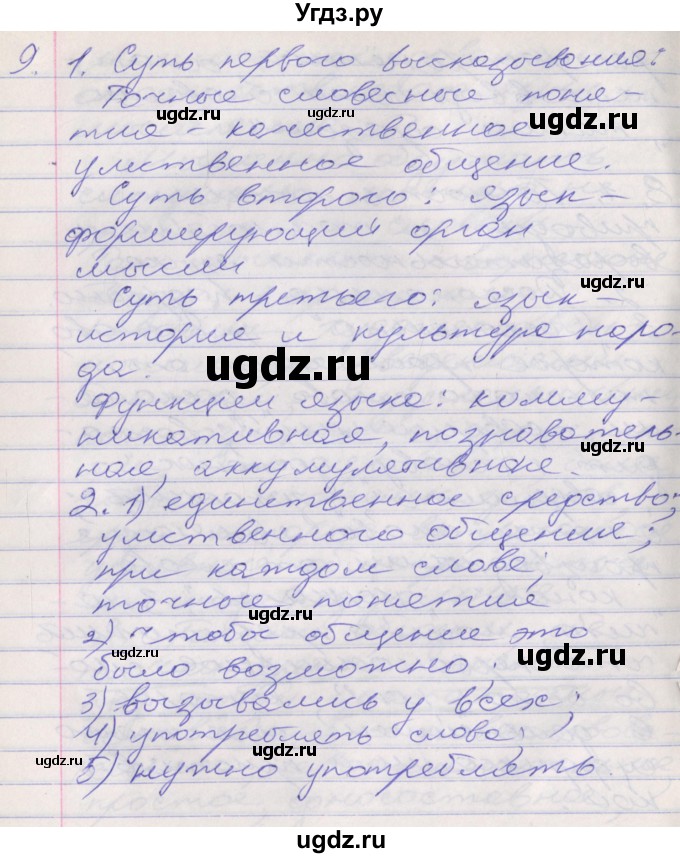 Угдз.ру
9. 1. Суть первого высказывания:
Точные словесные поня-
тия - качественное
умственное общение.
Суть второго: язык -
формирующий орган
мысли
Суть третьего: язык -
история и культура наро-
да.
Функции языка: комму-
никативная, познаватель-
ная, аккумулятивная.
2. 1) единственное средство;
умственного общения;
при каждом слове;
точные понятия
2) чтобы общение это
было возможно;
3) вызывались у всех;
4) употреблять слова;
5) нужно употреблять.
ugdz.ru
ugdz.ru
ugdz.ru
ugdz.ru
ugdz.ru
ugdz.ru
ugdz.ru
ugdz.ru
ugdz.ru
ugdz.ru
ugdz.ru
ugdz.ru
ugdz.ru
ugdz.ru